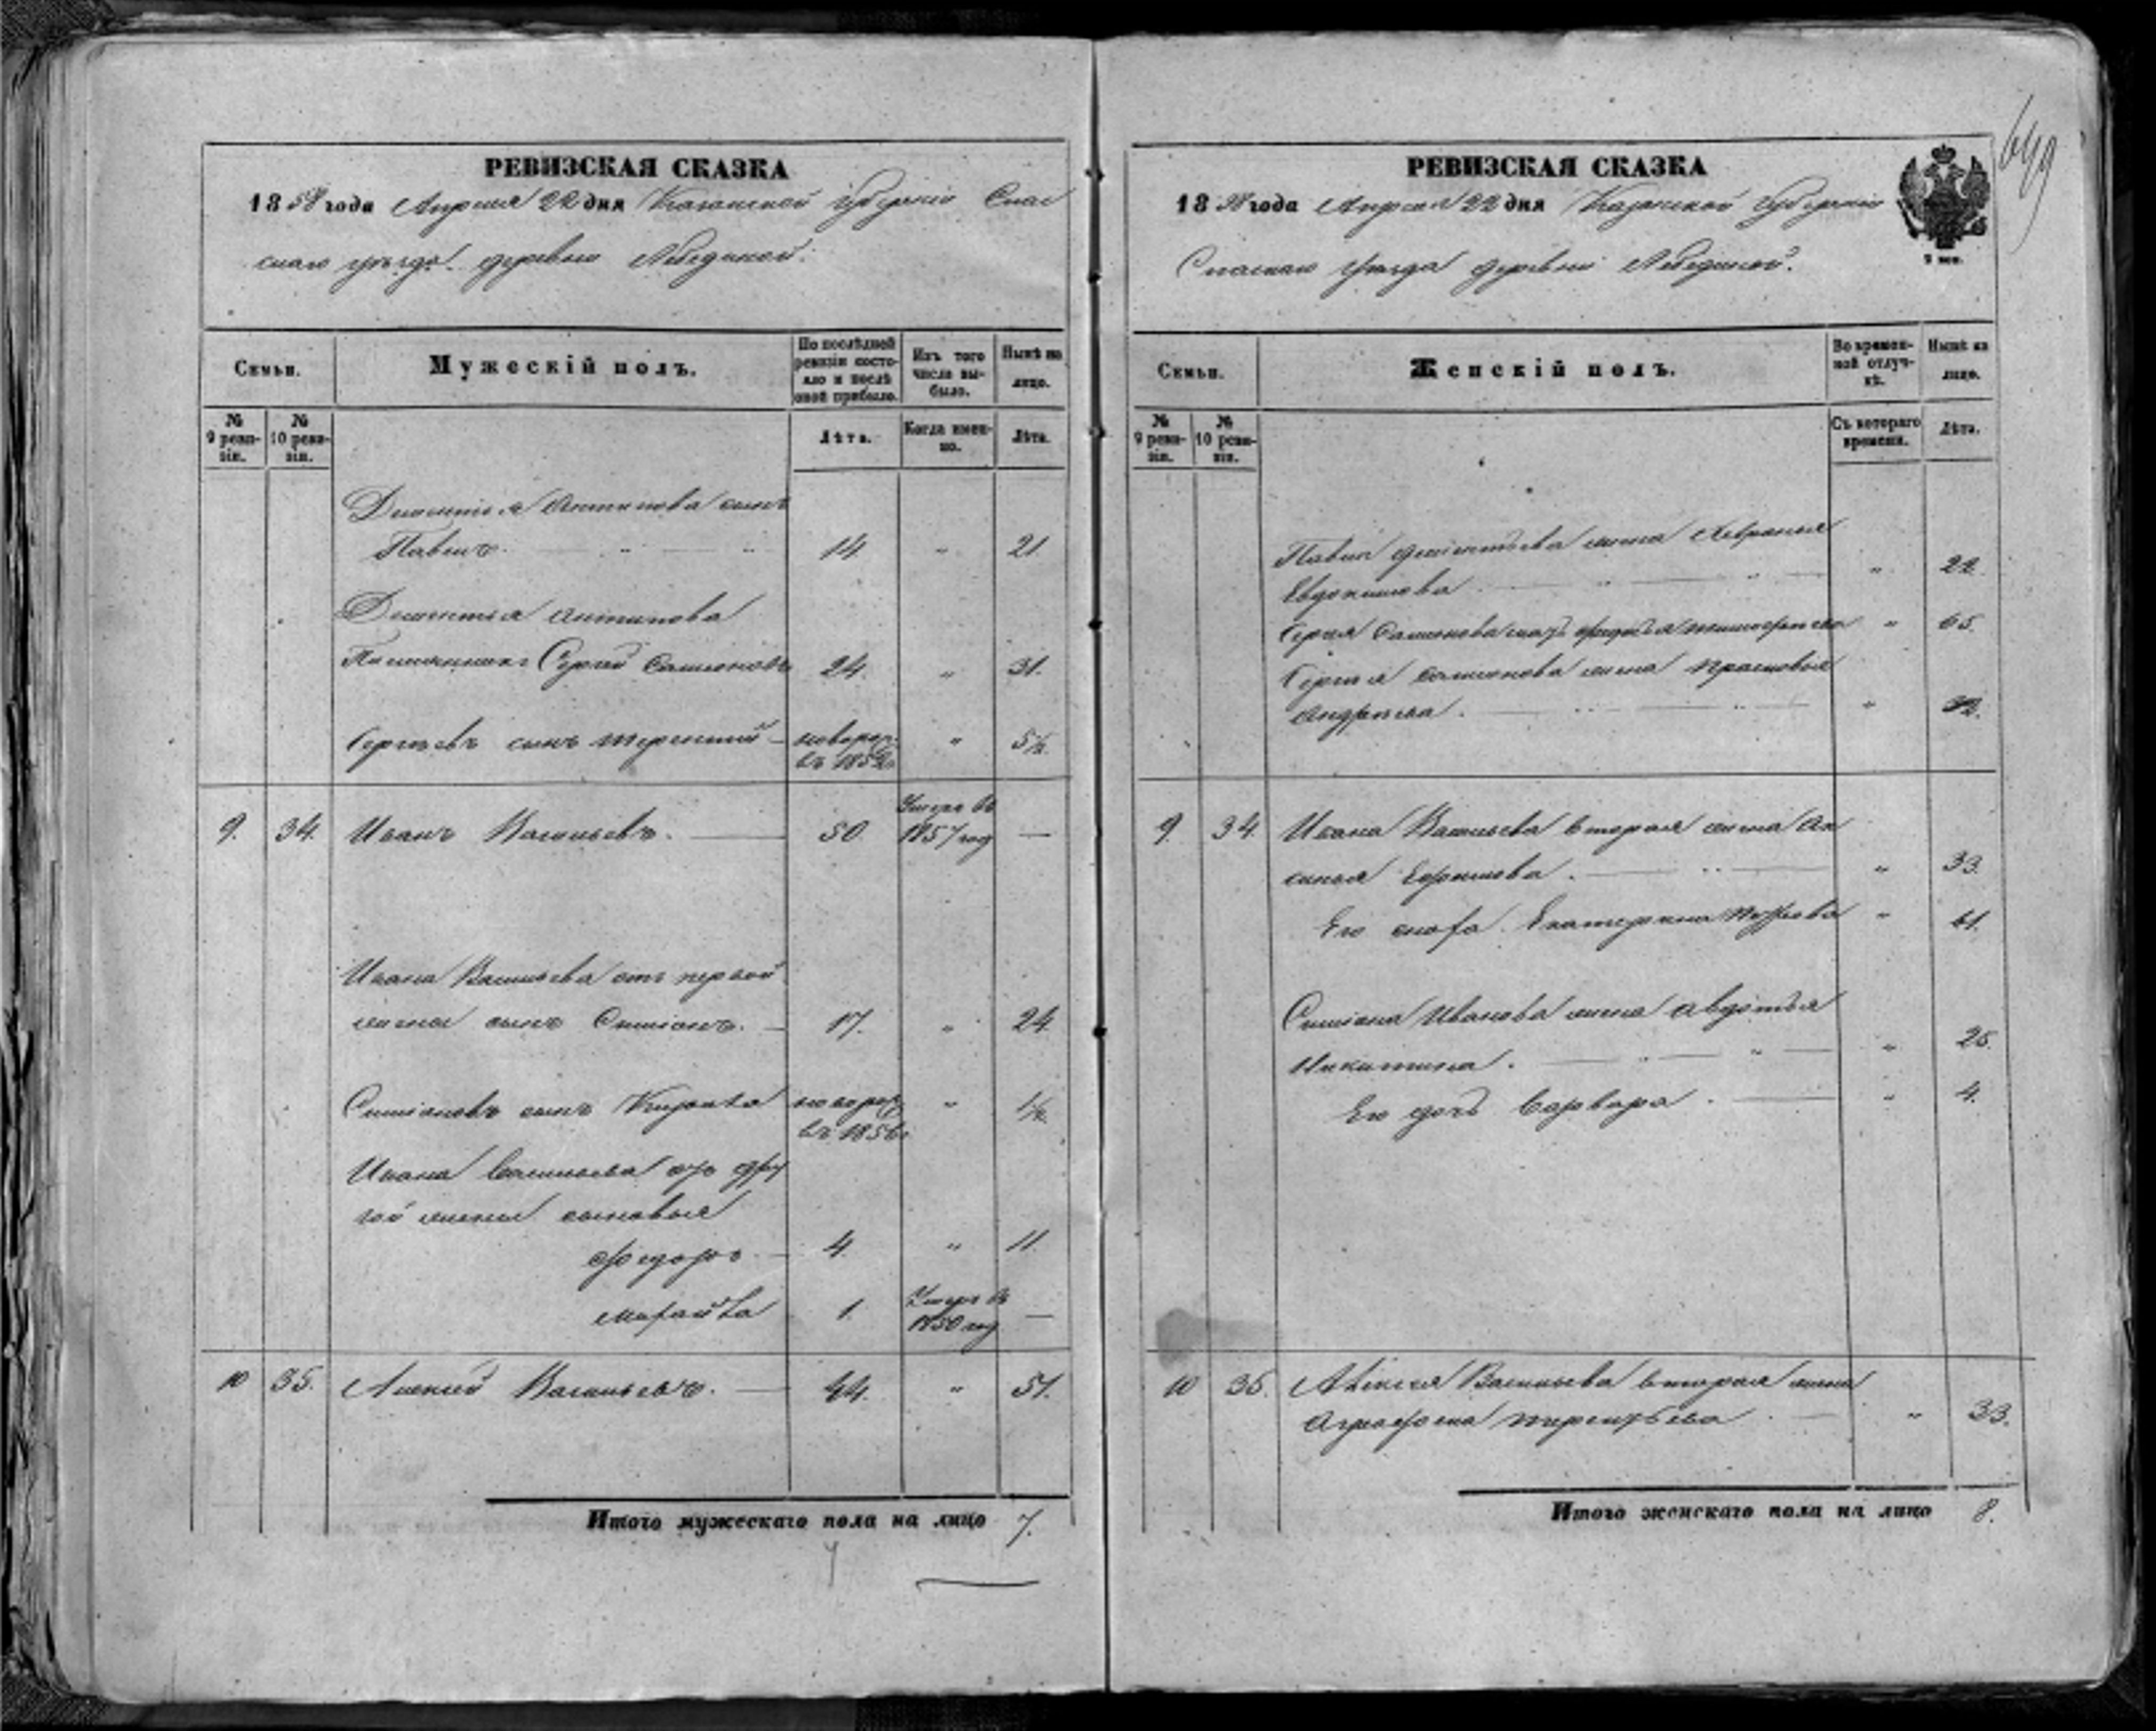 РЕВИЗСКАЯ СКАЗКА
1858 года Апреля 22 дня Казанской губернiи Спас
скаго уѣзда деревни Лебединой.
Семьи.
Мужескiй полъ.
По послѣдней ревизiи состояло и послѣ оной прибыло.
Изъ того числа выбыло.
Нынѣ на лицо.
№ 9 ревизiи.
№ 10 ревизiи.
Лѣта.
Когда именно.
Лѣта.
Дементiя Антипова сынъ
Павелъ. 14 " 21
Дементья Антипова
племянникъ Сергей Семионовъ 24. " 31.
Сергѣевъ сынъ Терентiй новорож. въ 1852г. " 5½.
9. 34. Иванъ Васильевъ. 50. Умеръ въ 1857 год —
Ивана Васильева отъ первой
жены сынъ Симiонъ. 17. " 24.
Симiоновъ сынъ новорож. въ 1856г. " 1½.
Ивана Васильева отъ дру
гой жены сыновья
Федоръ 4. " 11.
1. Умеръ въ 1850 год —
10 35. Алексей Васильевъ. 44. " 51.
Итого мужескаго пола на лицо 7.
РЕВИЗСКАЯ СКАЗКА
649
1858 года Апреля 22 дня Казанской губернiи
2 коп.
Спаскаго уѣзда деревни Лебединой.
Семьи.
Женскiй полъ.
Во временной отлучкѣ.
Нынѣ на лицо.
№ 9 ревизiи.
№ 10 ревизiи.
Съ котораго времени.
Лѣта.
Павла Дементьева жена
Евдокимова " 22.
Сергея Семионова мать Федосья Тимофеева " 65.
Сергея Семионова жена Прасковья
Андреева. " 32.
9. 34. Ивана Васильева вторая жена Ак
синья Ефимова. " 33.
Его сноха Екатерина Петрова " 41.
Симiона Иванова жена Авдотья
Никитина. " 25.
Его дочь Варвара. " 4.
10 35. Алексея Васильева вторая жена
Аграфена Терентьева " 33.
Итого женскаго пола на лицо 8.